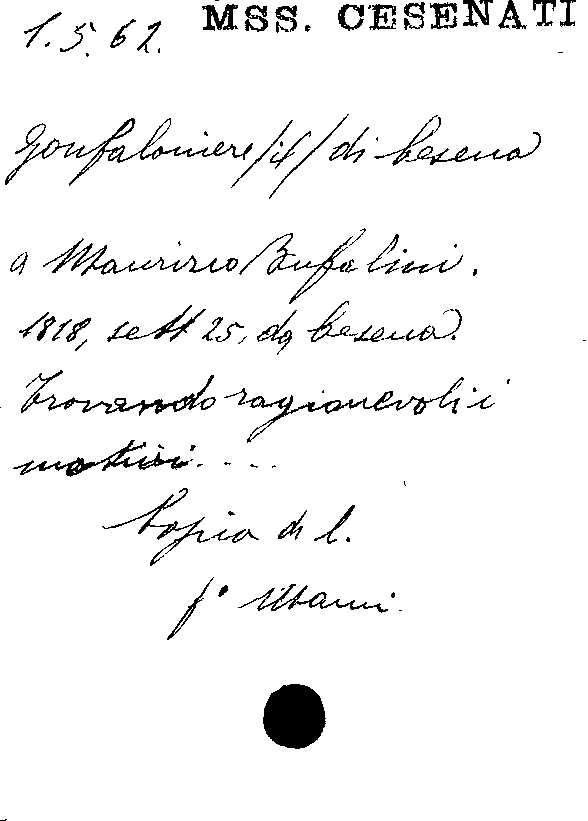 1.5.62. MSS. CESENATI
Gonfaloniere /il/ di Cesena
a Maurizio Bufalini.
1818, sett 25, da Cesena.
Trovando ragionevoli i
motivi....
Copia di l.
fº Mami.